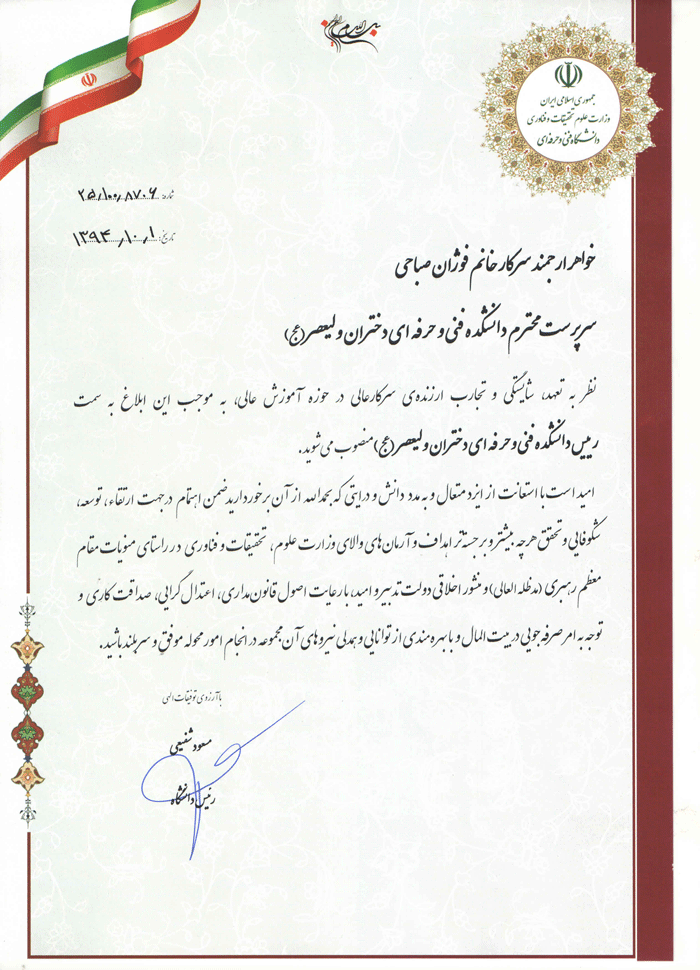 بسم الله الرحمن الرحیم
جمهوری اسلامی ایران
وزارت علوم تحقیقات و فناوری
دانشگاه فنی و حرفه‌ای
شماره: ۲۵/۱۰۰/۸۷۰۶
تاریخ: ۱۳۹۴/۱۰/۱
خواهر ارجمند سرکار خانم فوژان صباحی
سرپرست محترم دانشکده فنی و حرفه ای دختران ولیعصر(عج)
نظر به تعهد، شایستگی و تجارب ارزنده‌ی سرکارعالی در حوزه آموزش عالی، به موجب این ابلاغ به سمت
رییس دانشکده فنی و حرفه ای دختران ولیعصر(عج) منصوب می شوید.
امید است با استعانت از ایزد متعال و به مدد دانش و درایتی که بحمدالله از آن برخوردارید ضمن اهتمام در جهت ارتقاء، توسعه،
شکوفایی و تحقق هرچه بیشتر و برجسته‌تر اهداف و آرمان‌های والای وزارت علوم، تحقیقات و فناوری در راستای منویات مقام
معظم رهبری (مدظله العالی) و منشور اخلاقی دولت تدبیر و امید، با رعایت اصول قانون‌مداری، اعتدال گرایی، صداقت کاری و
توجه به امر صرفه جویی در بیت المال و با بهره مندی از توانایی و همدلی نیروهای آن مجموعه در انجام امور محوله موفق و سربلند باشید.
با آرزوی توفیقات الهی
مسعود شفیعی
رئیس دانشگاه